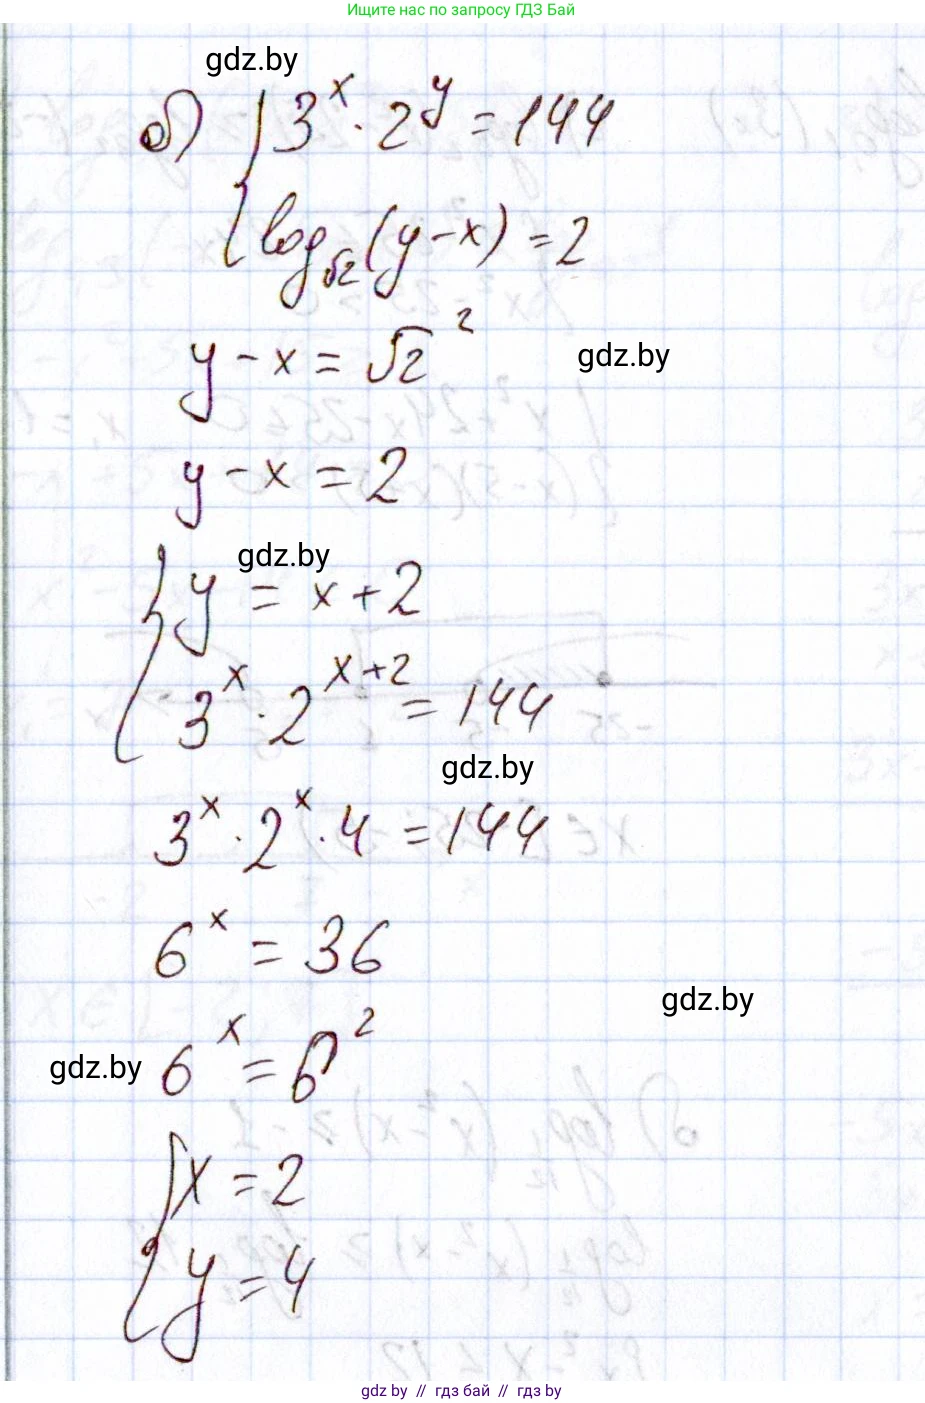 Ищите нас по запросу ГДЗ Бай
gdz.by
б) { 3^x · 2^y = 144
log_√2 (y − x) = 2
y − x = √2^2
gdz.by
y − x = 2
gdz.by
{ y = x + 2
3^x · 2^(x+2) = 144
gdz.by
3^x · 2^x · 4 = 144
6^x = 36
gdz.by
6^x = 6^2
gdz.by
{ x = 2
y = 4
gdz by // гдз бай // гдз by